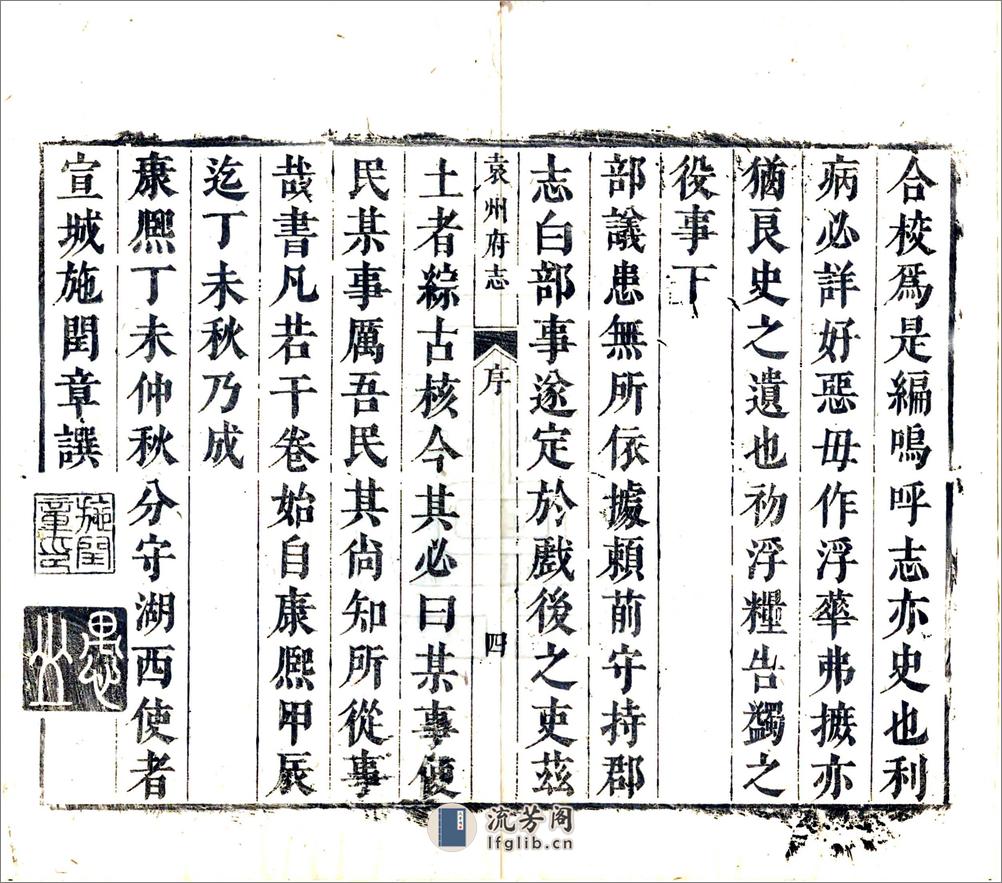 合校爲是編嗚呼志亦史也利
病必詳好惡毋作浮華弗摭亦
猶良史之遺也初浮糧告蠲之
役事下
部議患無所依據頼前守持郡
志白部事遂定於戲後之吏茲
袁州府志
序
四
土者綜古核今其必曰某事便
民某事厲吾民其尚知所從事
哉書凡若干卷始自康熈甲辰
迄丁未秋乃成
康熈丁未仲秋分守湖西使者
宣城施閏章譔
施閏章印
愚山
流芳阁
lfglib.cn